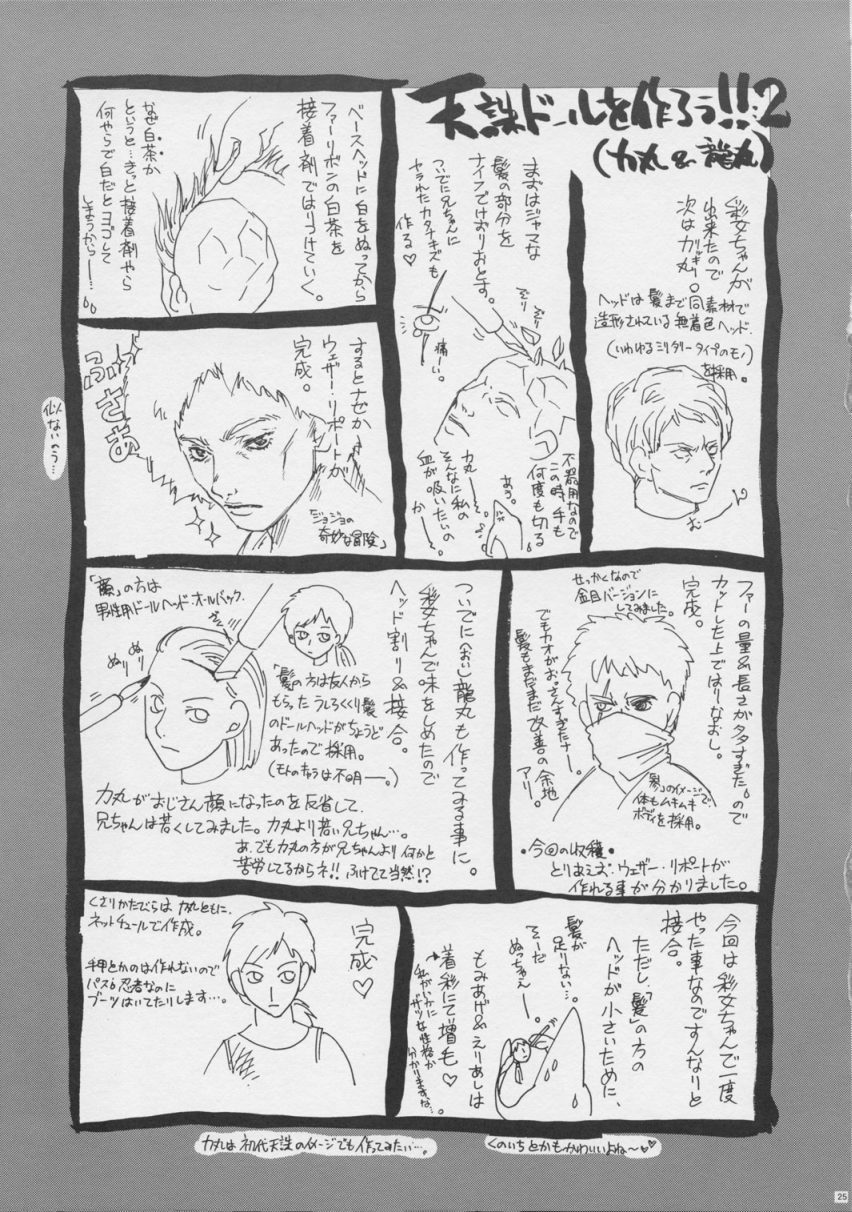 天誅ドールを作ろう!!2
(力丸&龍丸)
彩女ちゃんが
出来たので
次は力丸。
ヘッドは髪まで同素材で
造形されている無着色ヘッド.
(いわゆるミリタリータイプのモノ)
を採用。
まずはジャマな
髪の部分を
ナイフでけずりおとす。
ついでに兄ちゃんに
ヤラれたカタナキズも
作る♡
痛ーい。
不器用なので
この時手も
何度も切る
あう。
力丸——。
そんなに私の
血が吸いたいの
か——。
ベースヘッドに白をぬってから
ファーリボンの白茶を
接着剤ではりつけていく。
なぜ白茶か
というと…きっと接着剤やら
何やらで白だとヨゴして
しまうから—…。
するとナゼか
ウェザー・リポートが
完成。
ふさぁ
「ジョジョの
奇妙な冒険」
似ないべう…
ファーの量&長さが多すぎたので
カットした上ではりなおし。
完成。
せっかくなので
金目バージョンに
してみました。
でもカオがおっさんすぎたナー。
髪もまだまだ改善の余地
アリ。
「参」のイメージで
体もムキムキ
ボディを採用。
・今回の収穫・
とりあえず、ウェザー・リポートが
作れる事が分かりました。
ついでに(おい)龍丸も作ってみる事に。
彩女ちゃんで味をしめたので
ヘッド割り&接合。
「蔵」の方は
男性用ドールヘッド・オールバック.
ぬり
ぬり
「髪」の方は友人から
もらったうしろくくり髪
のドールヘッドがちょうど
あったので採用。
(モトのキャラは不明—。)
力丸がおじさん顔になったのを反省して、
兄ちゃんは若くしてみました。力丸より若い兄ちゃん…。
あ、でも力丸の方が兄ちゃんより何かと
苦労してるからネ!!ふけてて当然!?
今回は彩女ちゃんで一度
やった事なのですんなりと
接合。
ただし、「髪」の方の
ヘッドが小さいために、
髪が
足りない…。
そーだ
ぬっちゃえ—。
もみあげ&えりあしは
着彩にて増毛♡
私がいかに
ザツな性格か
分かりますな…。
完成♡
くさりかたびらは力丸ともに、
ネットチュールで作成。
手甲とかのは作れないので
パス。忍者なのに
ブーツはいてたりします…。
力丸は初代天誅のイメージでも作ってみたい…。
くのいちとかもかわいいよね～♡♡
25